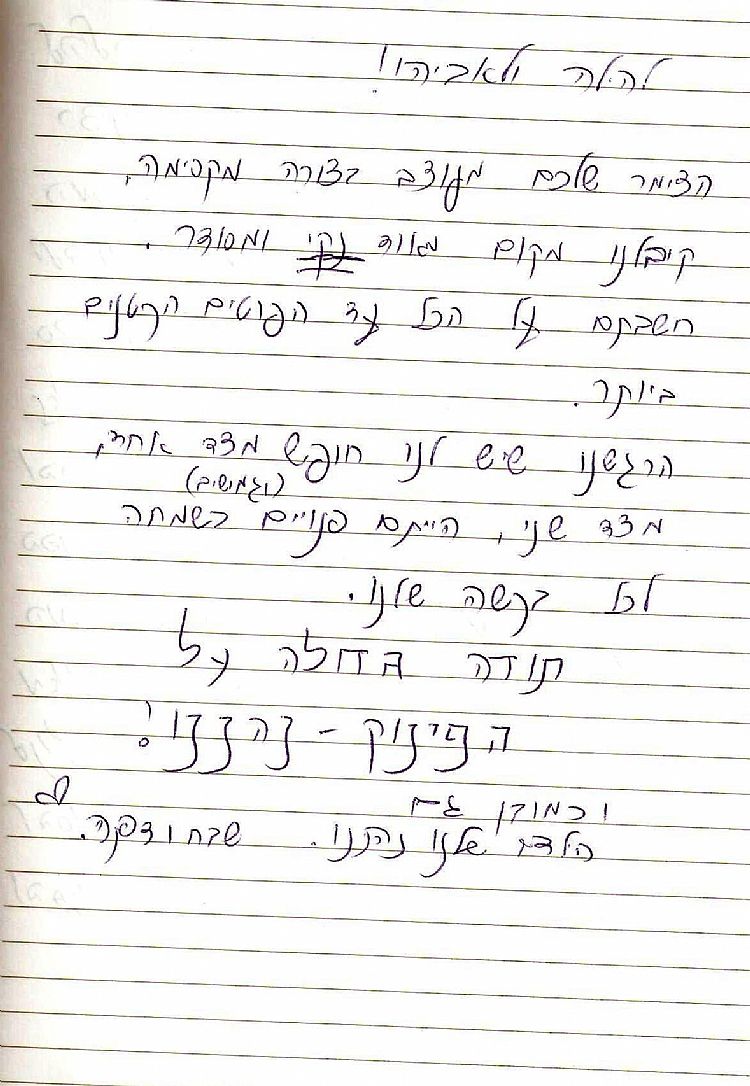 להלה ולאביהו!
הצימר שלכם מעוצב בצורה מקסימה,
קיבלנו מקום מאוד נקי ומסודר.
חשבתם על הכל עד הפרטים הקטנים
ביותר.
הרגשנו שיש לנו חופש מצד אחד,
(וגמישים)
מצד שני, הייתם פנויים בשמחה
לכל בקשה שלנו.
תודה גדולה על
הפינוק - נהננו!
וכמובן גם
הילדים שלנו נהננו.